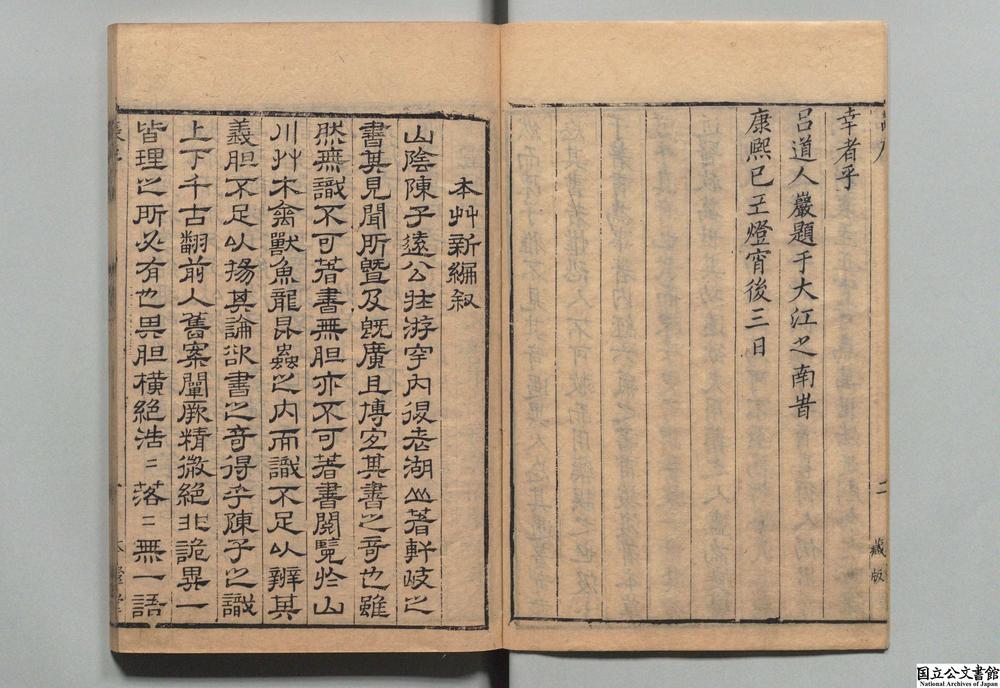 幸者乎
呂道人巖題于大江之南岿
康熙己巳燈宵後三日
二
藏版
本艸新編叙
山陰陳子遠公壯游宇內後老湖山著軒岐之
書其見聞所暨及旣廣且博宜其書之奇也雖
然無識不可著書無胆亦不可著書閱覽於山
川艸木禽獸魚龍昆蟲之內而識不足以辨其
義胆不足以揚其論欲書之奇得乎陳子之識
上下千古翻前人舊案闡厥精微絕非詭異一
皆理之所必有也畏胆橫絕浩〻落〻無一語
一
国立公文書館
National Archives of Japan